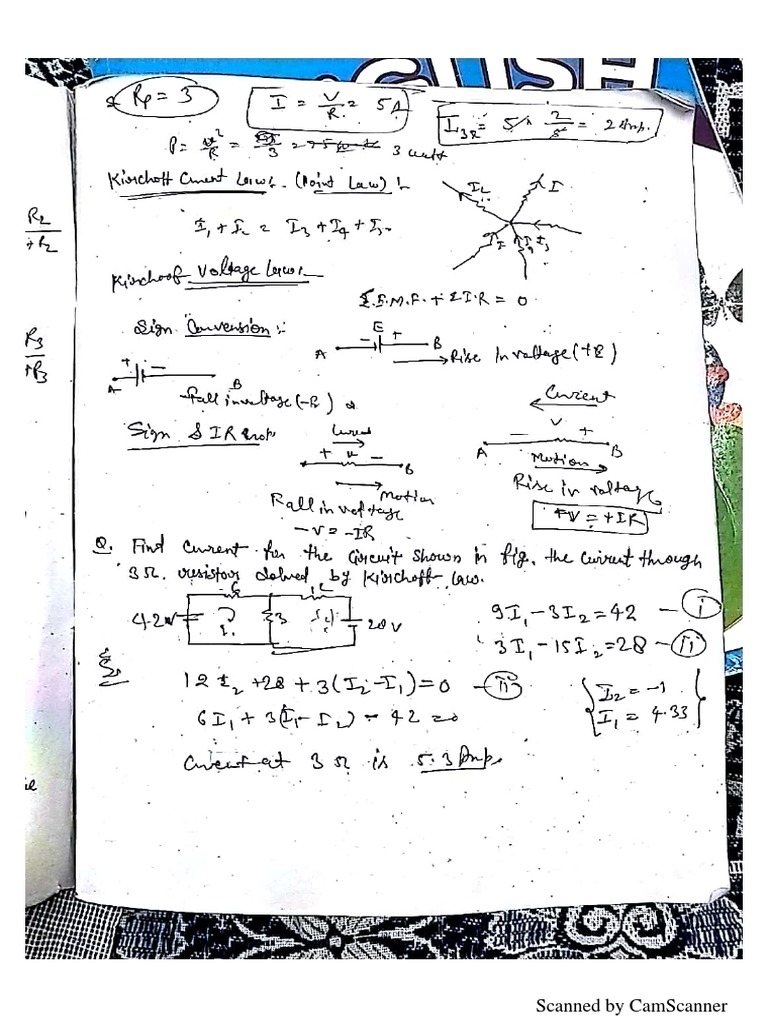 GLISH
Rp = 3
I = V/R = 5A
I3Ω = 5 × 2/5 = 2 Amp.
3 watt
Kirchoff Current Law:- (Point Law) :-
I1 + I2 = I3 + I4 + I5
R2
+R2
Kirchoof Voltage Law:-
Σ.E.M.F. + Σ I.R = 0
Sign Conversion:-
R3
+R3
E
A - + B
Rise in voltage (+E)
+ -
A B
Fall in voltage (-E)
Current
Sign & IR
Current
+ v - B
V
A - + B
Motion
Motion
Fall in voltage
Rise in voltage
-V = -IR
+V = +IR
Q. Find current for the Circuit shown in fig. the current through
3Ω. resistor solved by Kirchoff law.
42v I1 3 28V
9I1 - 3I2 = 42 - (i)
3I1 - 15I2 = 28 - (ii)
12I2 + 28 + 3(I2 - I1) = 0 - (ii)
I2 = -1
I1 = 4.33
6I1 + 3(I1 - I2) - 42 = 0
Current at 3Ω is 5.3 Amp.
Scanned by CamScanner